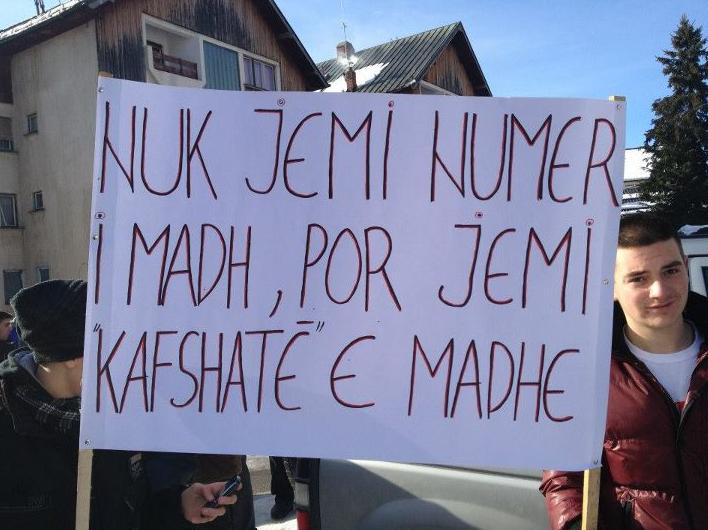 NUK JEMI NUMER
I MADH, POR JEMI
"KAFSHATË" E MADHE